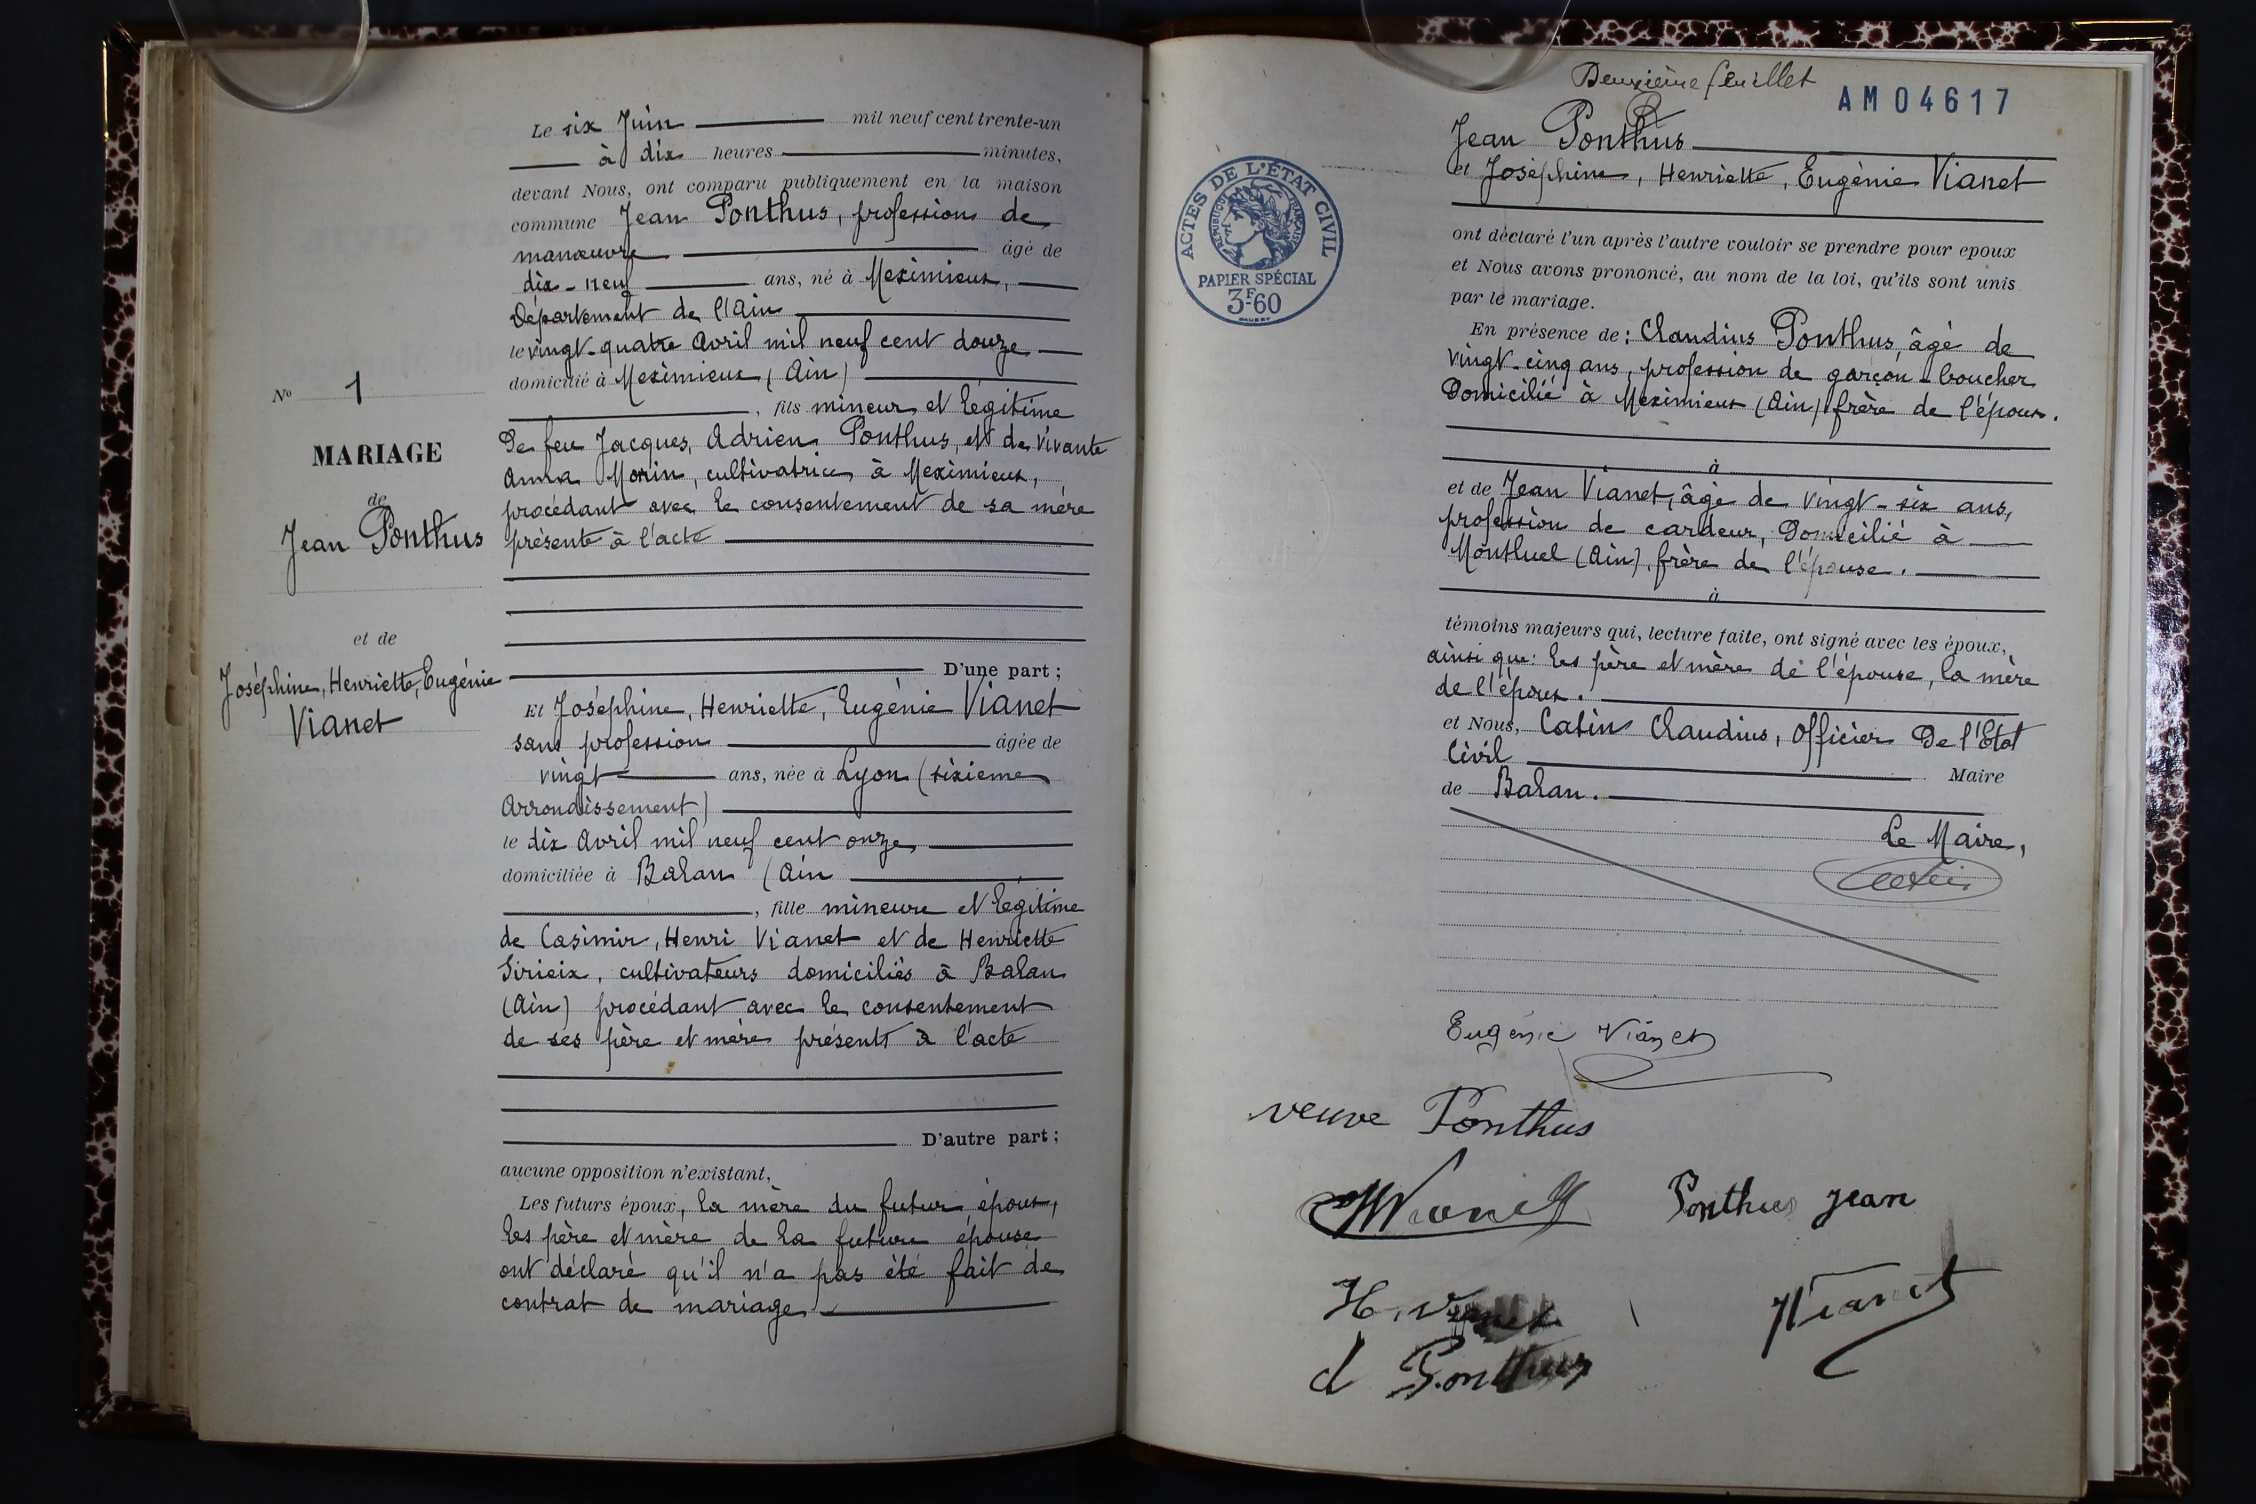 Le six Juin mil neuf cent trente-un
à dix heures minutes,
devant Nous, ont comparu publiquement en la maison
commune Jean Ponthus, profession de
manœuvre âgé de
dix-neuf ans, né à Meximieux,
Département de l'Ain
le vingt-quatre Avril mil neuf cent douze
domicilié à Meximieux (Ain)
, fils mineur et légitime
De feu Jacques, Adrien Ponthus, et de vivante
Anna Morin, cultivatrice à Meximieux,
procédant avec le consentement de sa mère
présente à l'acte
D'une part ;
Et Joséphine, Henriette, Eugénie Vianet
sans profession âgée de
vingt ans, née à Lyon (sixième
Arrondissement)
le dix Avril mil neuf cent onze
domiciliée à Balan (Ain
, fille mineure et légitime
de Casimir, Henri Vianet et de Henriette
Sirieix, cultivateurs domiciliés à Balan
(Ain) procédant avec le consentement
de ses père et mère présents à l'acte
D'autre part ;
aucune opposition n'existant,
Les futurs époux, la mère du futur époux,
les père et mère de la future épouse
ont déclaré qu'il n'a pas été fait de
contrat de mariage
No 1
MARIAGE
de
Jean Ponthus
et de
Joséphine, Henriette, Eugénie
Vianet
Deuxième feuillet
AM04617
Jean Ponthus
et Joséphine, Henriette, Eugénie Vianet
ACTES DE L'ÉTAT CIVIL
RÉPUBLIQUE FRANÇAISE
PAPIER SPÉCIAL
3F60
ont déclaré l'un après l'autre vouloir se prendre pour epoux
et Nous avons prononcé, au nom de la loi, qu'ils sont unis
par le mariage.
En présence de : Claudius Ponthus, âgé de
vingt-cinq ans, profession de garçon-boucher
Domicilié à Meximieux (Ain) frère de l'époux.
à
et de Jean Vianet, âgé de vingt-six ans,
profession de cardeur, Domicilié à
Montluel (Ain), frère de l'épouse.
à
témoins majeurs qui, lecture faite, ont signé avec les époux,
ainsi que: les père et mère de l'épouse, la mère
de l'époux.
et Nous, Catin Claudius, Officier De l'Etat
Civil Maire
de Balan.
Le Maire,
Catin
Eugénie Vianet
veuve Ponthus
Ponthus Jean
H. Vianet
Vianet
Ponthus